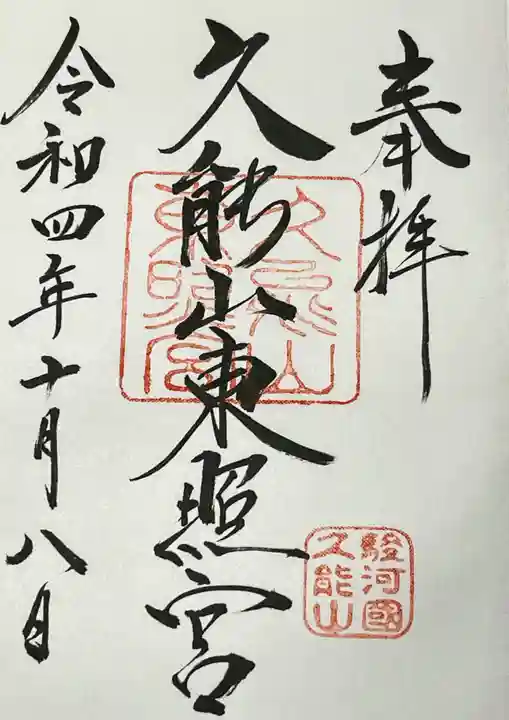 奉拝
久能山東照宮
久能山
東照宮
駿河國
久能山
令和四年十月八日